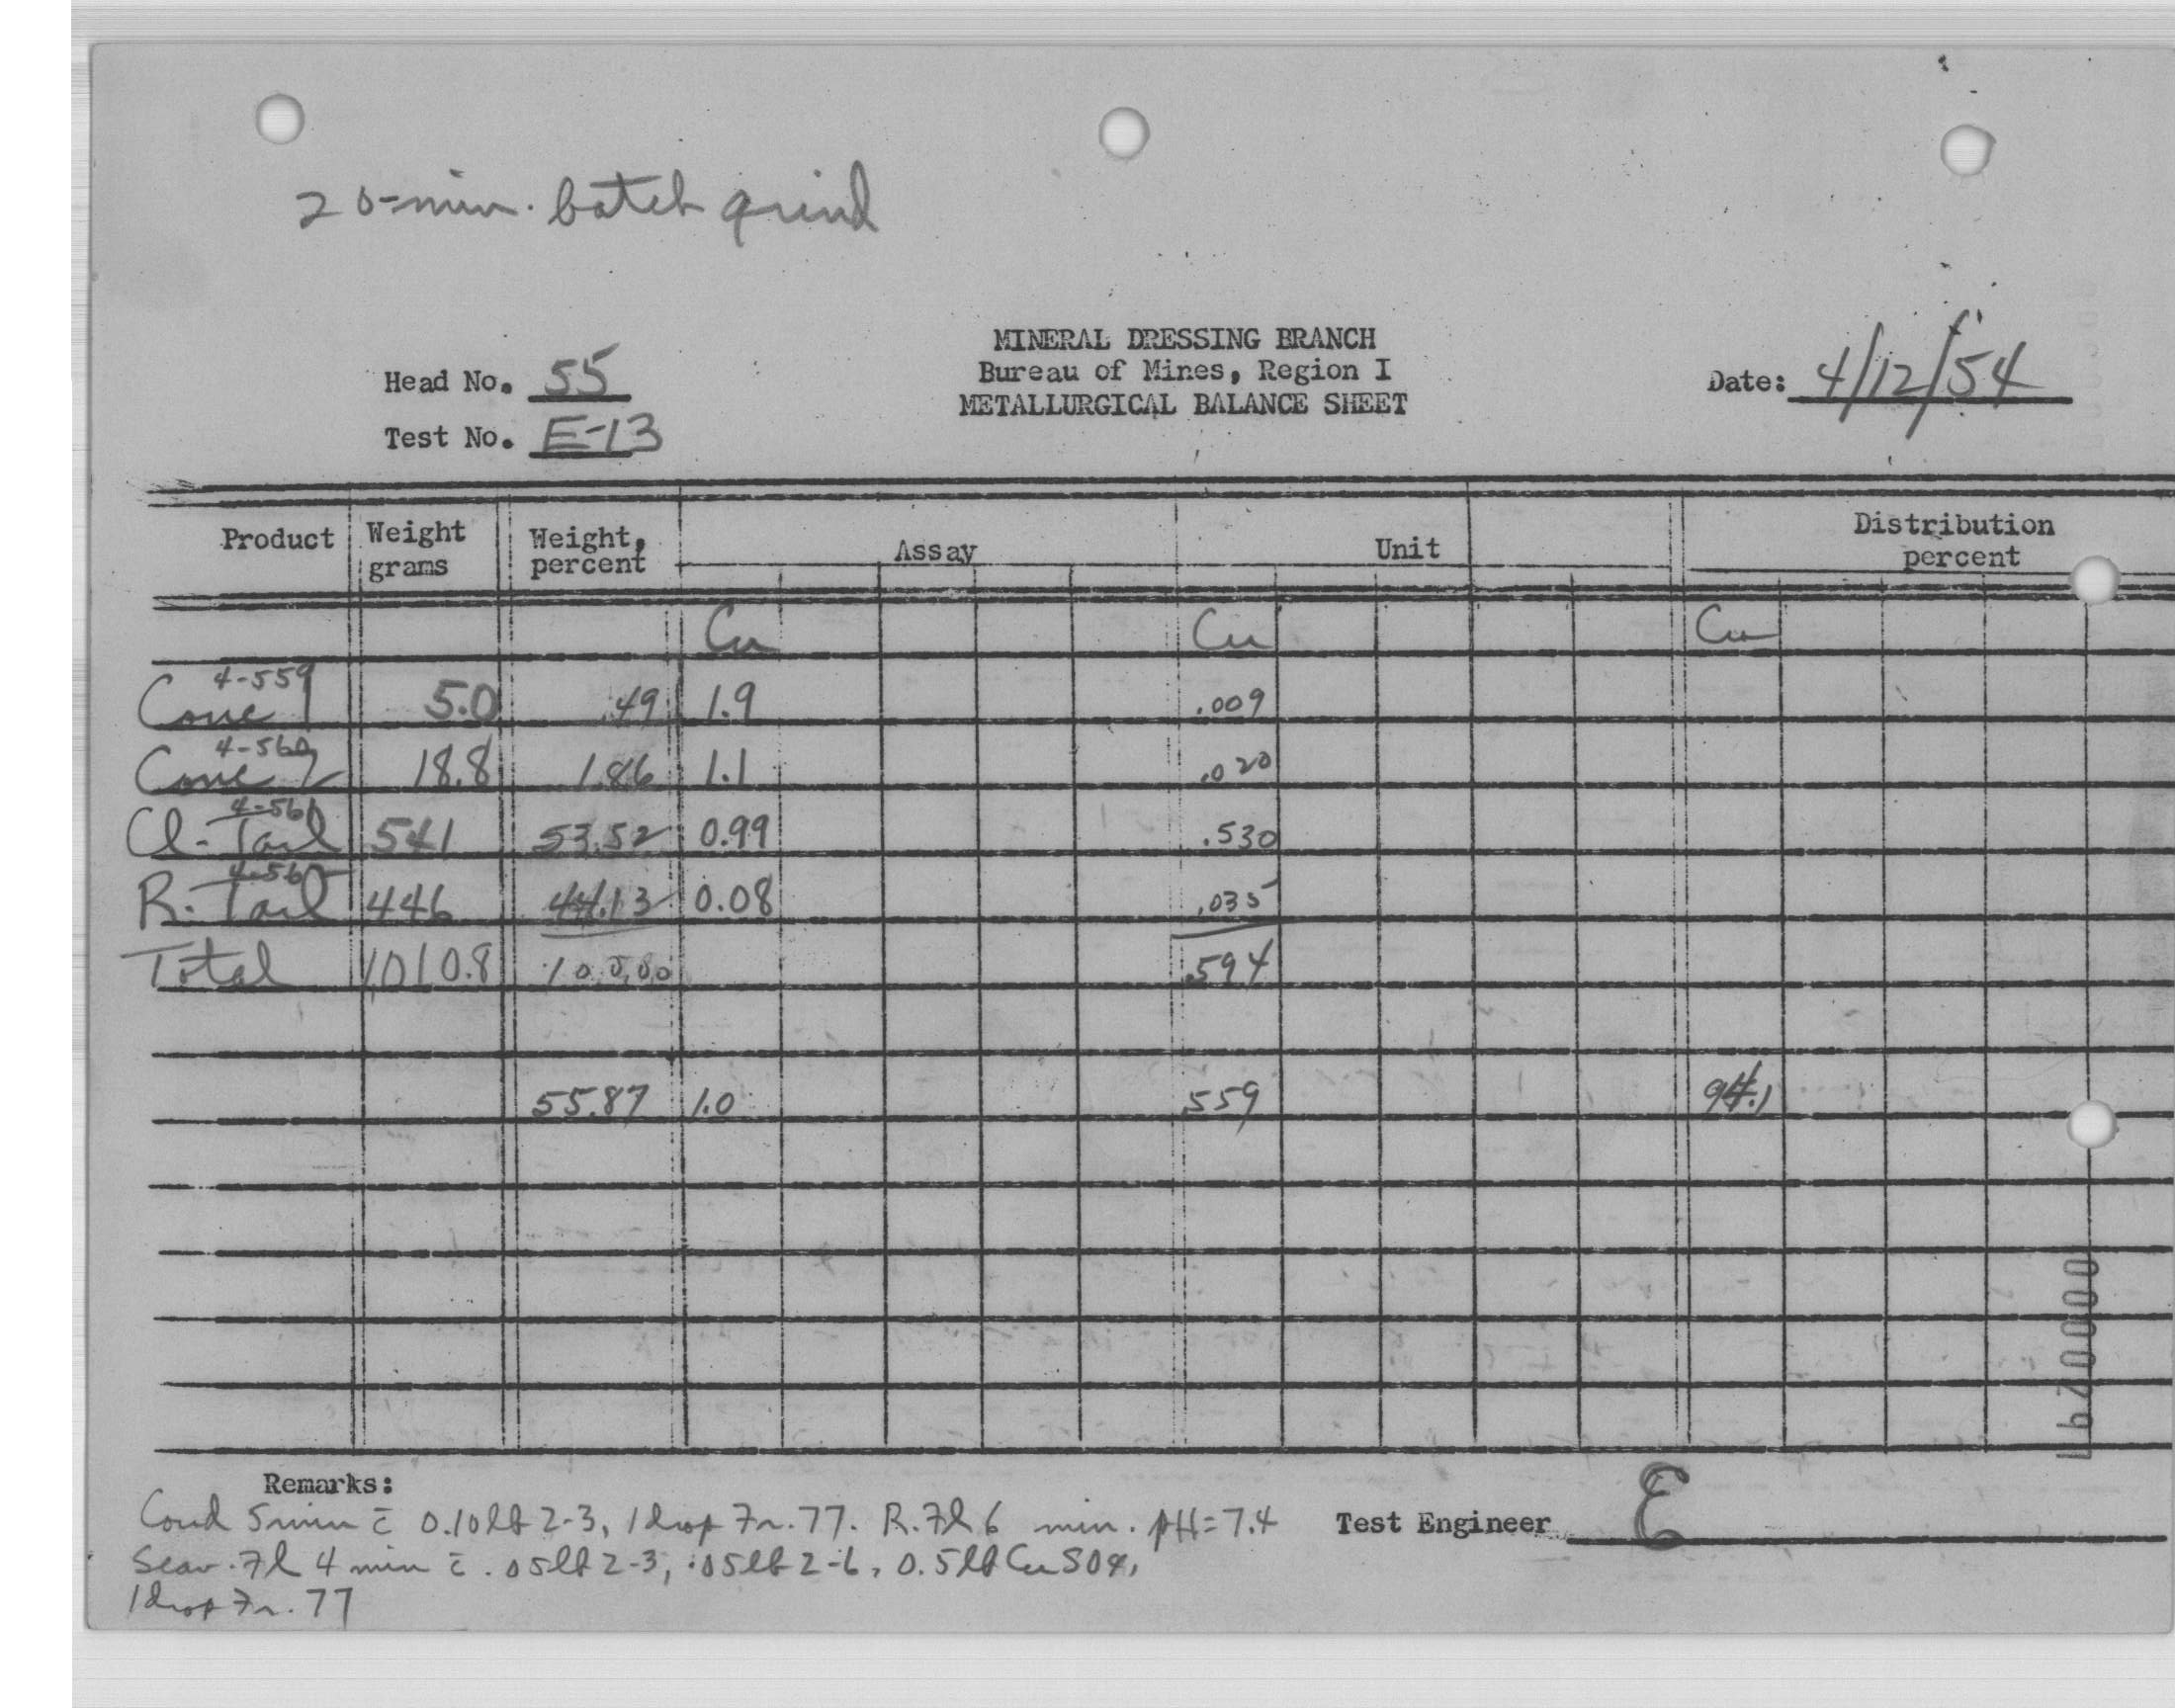 20-min. batch grind
MINERAL DRESSING BRANCH
Bureau of Mines, Region I
METALLURGICAL BALANCE SHEET
Head No. 55
Test No. E-13
Date: 4/12/54
Product Weight grams Weight, percent Assay Unit Distribution percent
Cu Cu Cu
4-559
Conc 1 5.0 .49 1.9 .009
4-560
Conc 2 18.8 1.86 1.1 .020
4-561
Cl. Tail 541 53.52 0.99 .530
R. Tail 446 44.13 0.08 .035
Total 1,010.8 100.00 .594
55.87 1.0 559 94.1
0000791
Remarks:
Cond 5 min c̄ 0.10 lb Z-3, 1 drop Fr. 77. R. Fl 6 min. pH=7.4
Scav. Fl 4 min c̄ .05 lb Z-3, .05 lb Z-6, 0.5 lb CuSO4,
1 drop Fr. 77
Test Engineer E